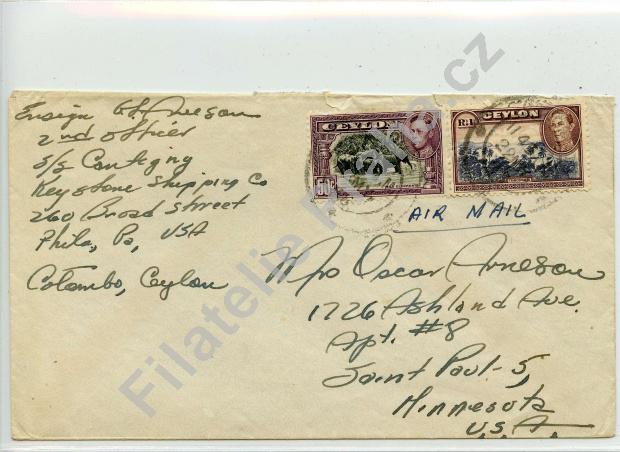 Ensign G.L. Arneson
2nd officer
s/s
Keystone Shipping Co
260 Broad Street
Phila, Pa, USA
Colombo, Ceylon
CEYLON
50c
CEYLON
R.1
AIR MAIL
Mrs Oscar Arneson
1726 Ashland Ave.
Apt. #8
Saint Paul-5,
Minnesota
U.S.A.
Filatelie cz